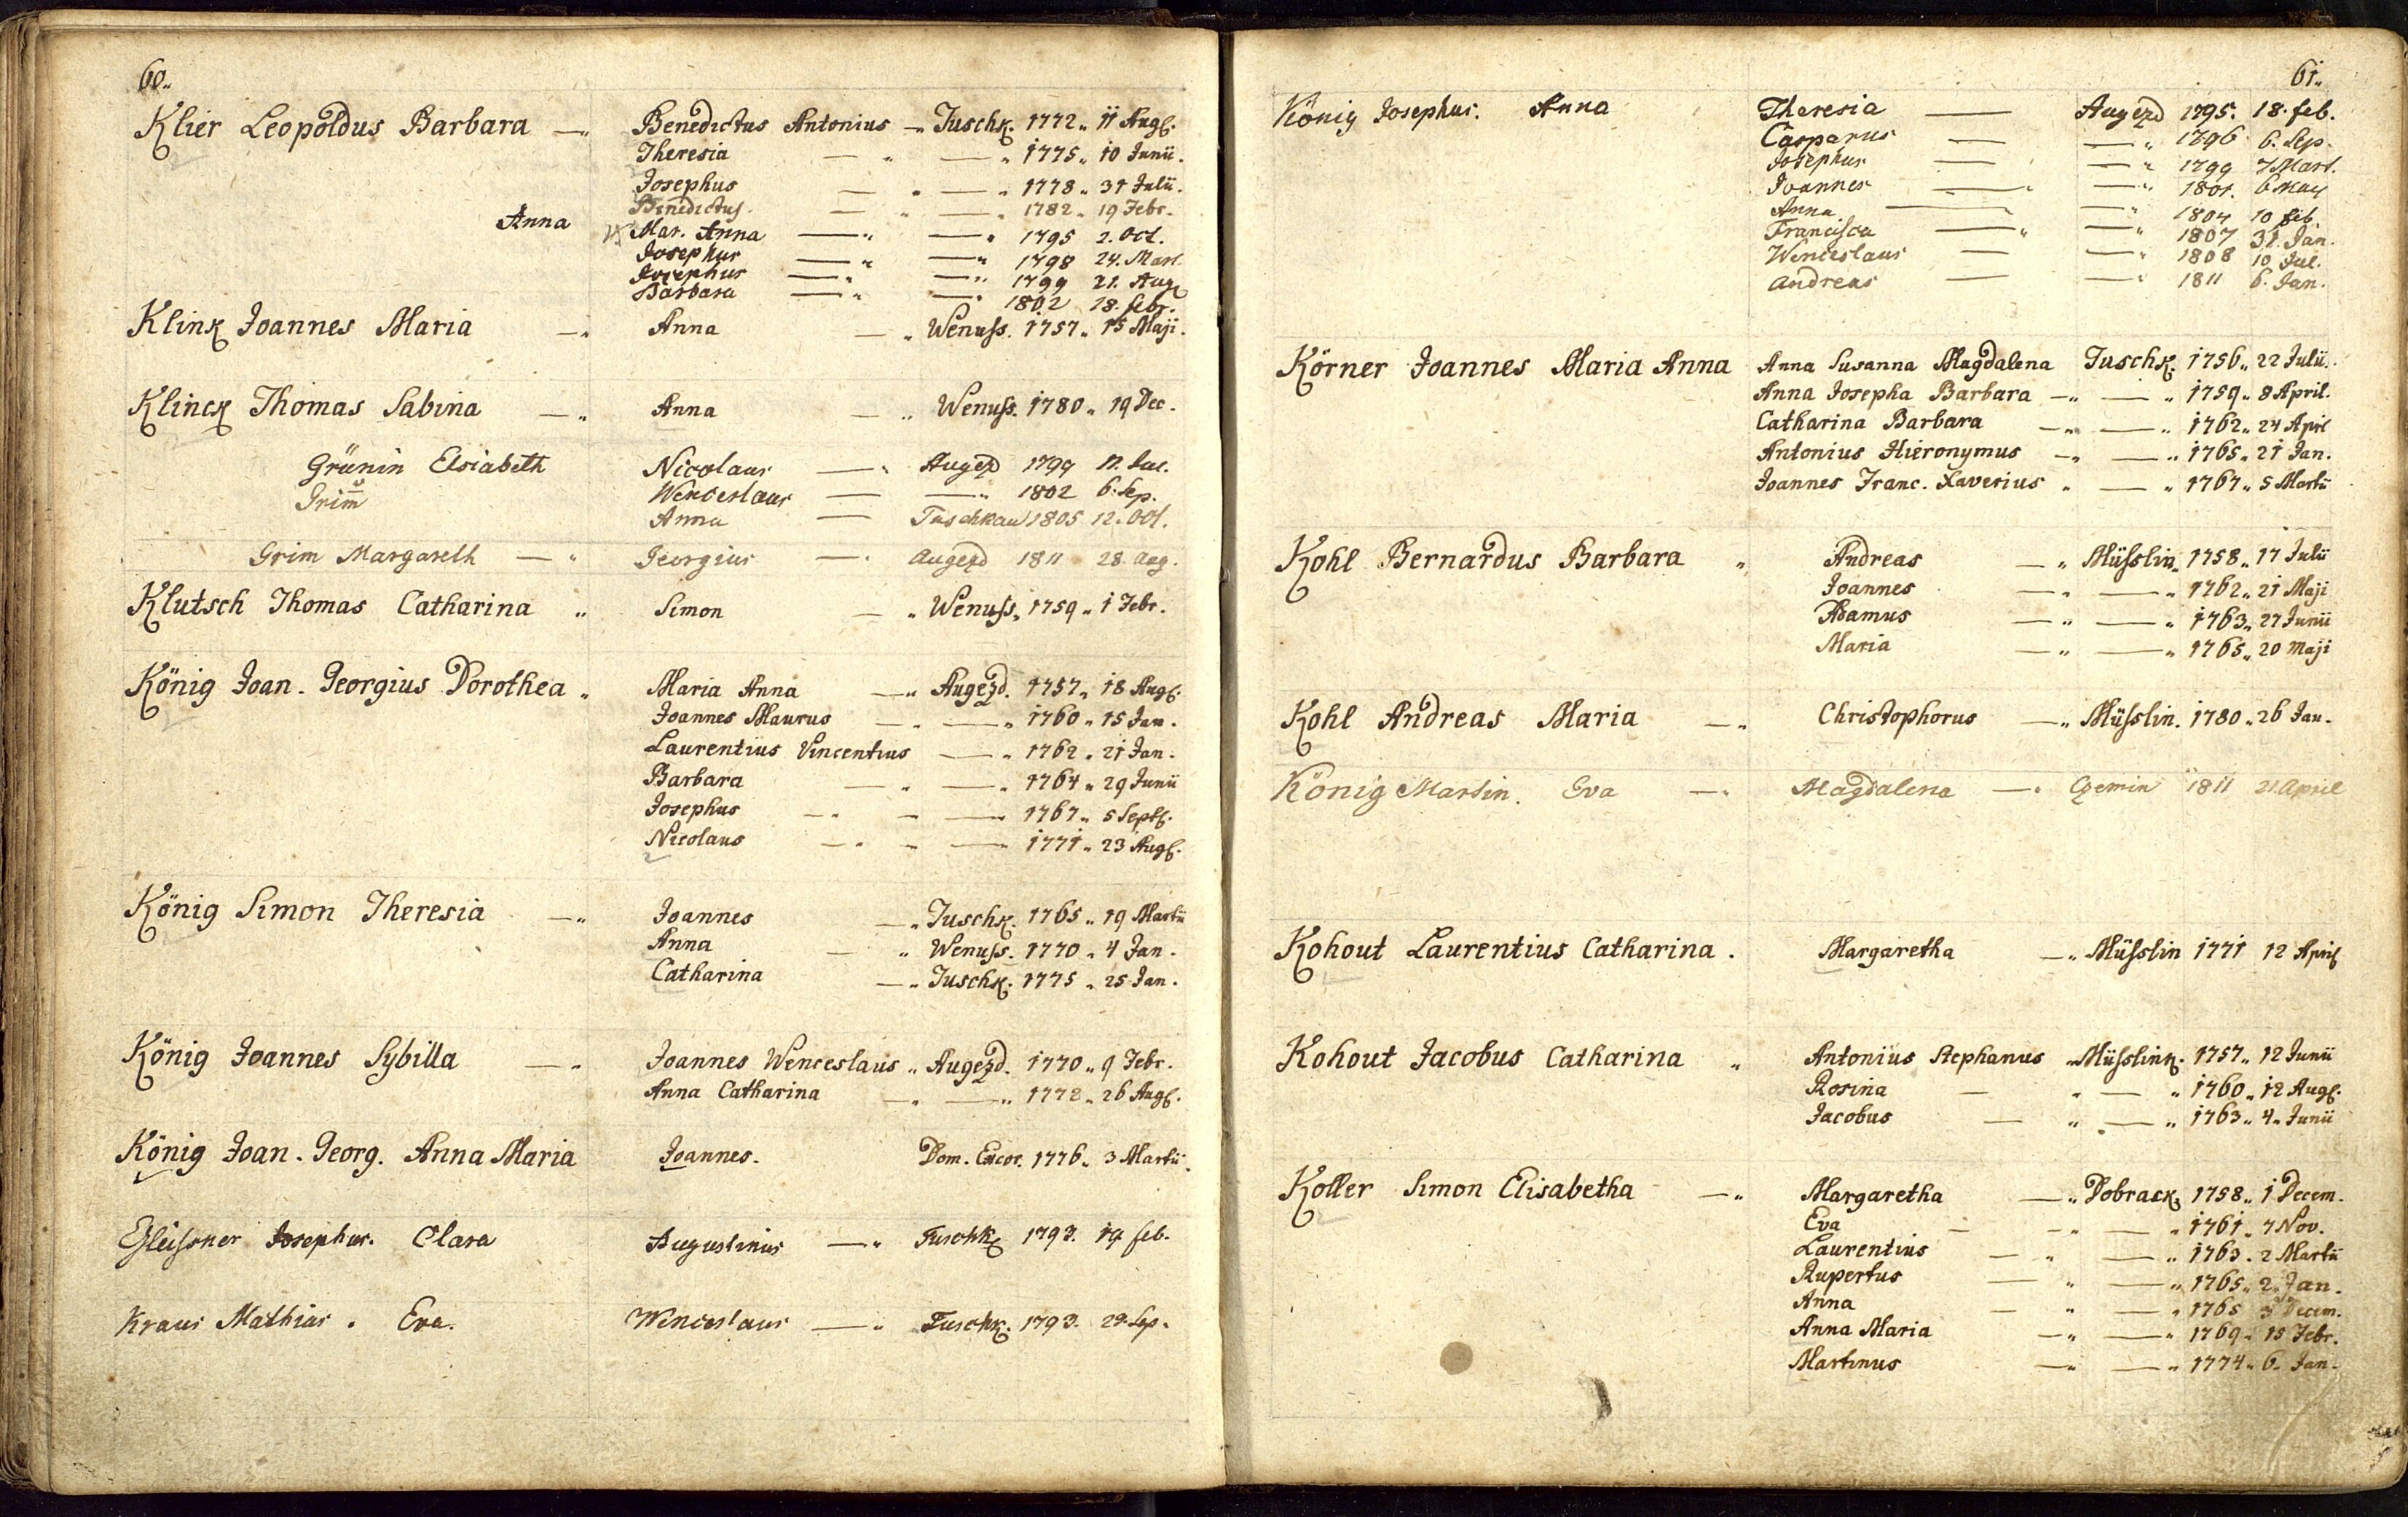 60..
Klier Leopoldus Barbara —„ Benedictus Antonius —„ Tuschk. 1772„ 11 Aug.
Theresia —„ —„ 1775„ 10 Junii.
Josephus —„ —„ 1778„ 31 Julii.
Benedictus. —„ —„ 1782„ 19 Febr.
Anna Mar. Anna —„ —„ 1795 2. Oct.
Josephus —„ —„ 1798 24. Mart.
Josephus —„ —„ 1799 21. Aug
Barbara —„ —„ 1802 18. febr.
Klink Joannes Maria —„ Anna —„ Wenuss. 1757„ 15 Maji.
Klinck Thomas Sabina —„ Anna —„ Wenuss. 1780„ 19 Dec.
Grünin Elsiabeth Nicolaus —„ Augezd 1799
Grim̄ Wenceslaus — —„ 1802 6. Sep.
Anna — Tuschkau 1805 12. Oct.
Grim Margareth —„ Georgius —„ Augezd 1811 28. Aug.
Klutsch Thomas Catharina „ Simon —„ Wenuss. 1759„ 1 Febr.
König Joan. Georgius Dorothea „ Maria Anna —„ Augezd. 1757„ 18 Aug.
Joannes Maurus —„ —„ 1760„ 15 Jan.
Laurentius Vincentius —„ 1762„ 21 Jan.
Barbara —„ —„ 1764„ 29 Junii
Josephus —„ —„ 1767„ 5 Sept.
Nicolaus —„ —„ 1771„ 23 Aug.
König Simon Theresia —„ Joannes —„ Tuschk. 1765„ 19 Martii
Anna —„ Wenuss. 1770„ 4 Jan.
Catharina —„ Tuschk. 1775„ 25 Jan.
König Joannes Sybilla —„ Joannes Wenceslaus „ Augezd. 1770„ 9 Febr.
Anna Catharina —„ —„ 1772„ 26 Aug.
König Joan. Georg. Anna Maria Joannes. Dom. 1776„ 3 Martii.
Josephus. Clara Augustinus —„ Tuschk 1793. 19 feb.
Kraus Mathias. Eva. Wenceslaus —„ Tuschk. 1793. 29. Sep.
61..
König Josephus. Anna Theresia — Augezd 1795. 18. feb.
Casparus — —„ 1796 6. Sep.
Josephus — —„ 1799 7 Mart.
Joannes —„ —„ 1801. 6 May
Anna — —„ 1804 10 feb
Francisca —„ —„ 1807 31. Jan.
Wenceslaus — —„ 1808 10 Jul.
Andreas — —„ 1811 6. Jan.
Körner Joannes Maria Anna Anna Susanna Magdalena Tuschk. 1756„ 22 Julii.
Anna Josepha Barbara —„ —„ 1759„ 8 April.
Catharina Barbara —„ —„ 1762„ 24 April
Antonius Hieronymus —„ —„ 1765„ 21 Jan.
Joannes Franc. Xaverius „ —„ 1767„ 5 Martii
Kohl Bernardus Barbara „ Andreas —„ Müsslin„ 1758„ 17 Julii
Joannes —„ —„ 1762„ 21 Maji
Adamus —„ —„ 1763„ 27 Junii
Maria —„ —„ 1765„ 20 Maji
Kohl Andreas Maria —„ Christophorus —„ Müsslin. 1780„ 26 Jan.
König Martin. Eva —„ Magdalena —„ Czemin 1811 21 April
Kohout Laurentius Catharina. Margaretha —„ Müsslin 1771 12 April
Kohout Jacobus Catharina „ Antonius Stephanus „ Müsslink. 1757„ 12 Junii
Rosina —„ —„ 1760„ 12 Aug.
Jacobus —„ —„ 1763„ 4„ Junii
Koller Simon Elisabetha —„ Margaretha —„ Dobrack„ 1758„ 1 Decem.
Eva —„ —„ 1761„ 7 Nov.
Laurentius —„ —„ 1763„ 2 Martii
Rupertus —„ —„ 1765„ 2 Jan.
Anna —„ —„ 1765 Decem.
Anna Maria —„ —„ 1769„ 15 Febr.
Martinus —„ —„ 1774„ 6. Jan.